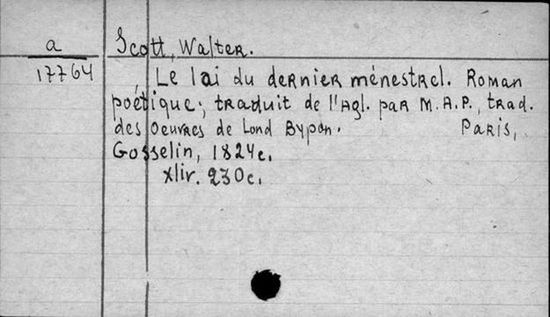 a
17764
Scott, Walter.
Le lai du dernier ménestrel. Roman
poétique; traduit de l'Agl. par M.A.P., trad.
des Oeuvres de Lond Bypon. Paris,
Gosselin, 1824c.
xliv. 230c.